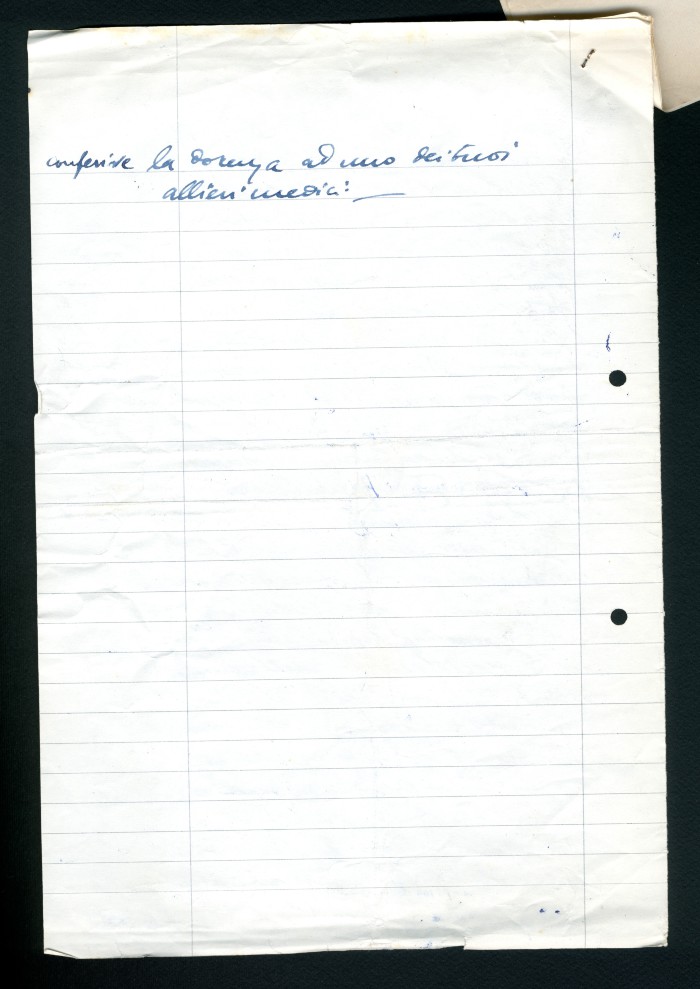 conferire la docenza ad uno dei tuoi
allievi medici: —